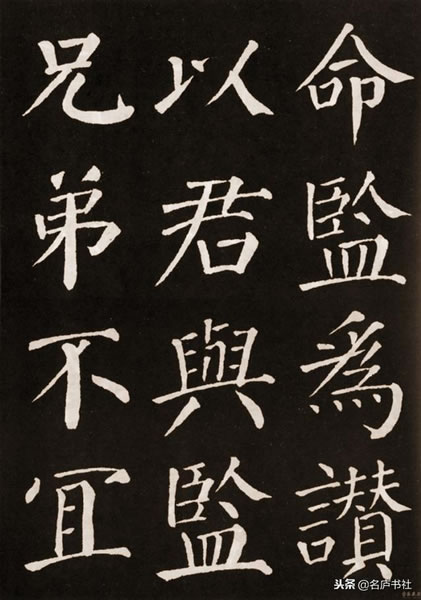 命監爲讃
以君與監
兄弟不冝
头条 @名庐书社